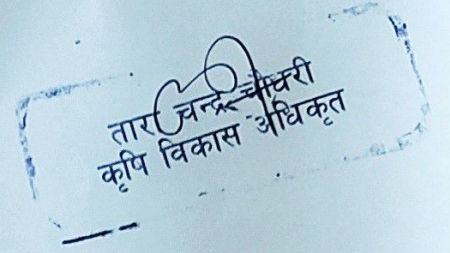 तारा चन्द्र चौधरी
कृषि विकास अधिकृत